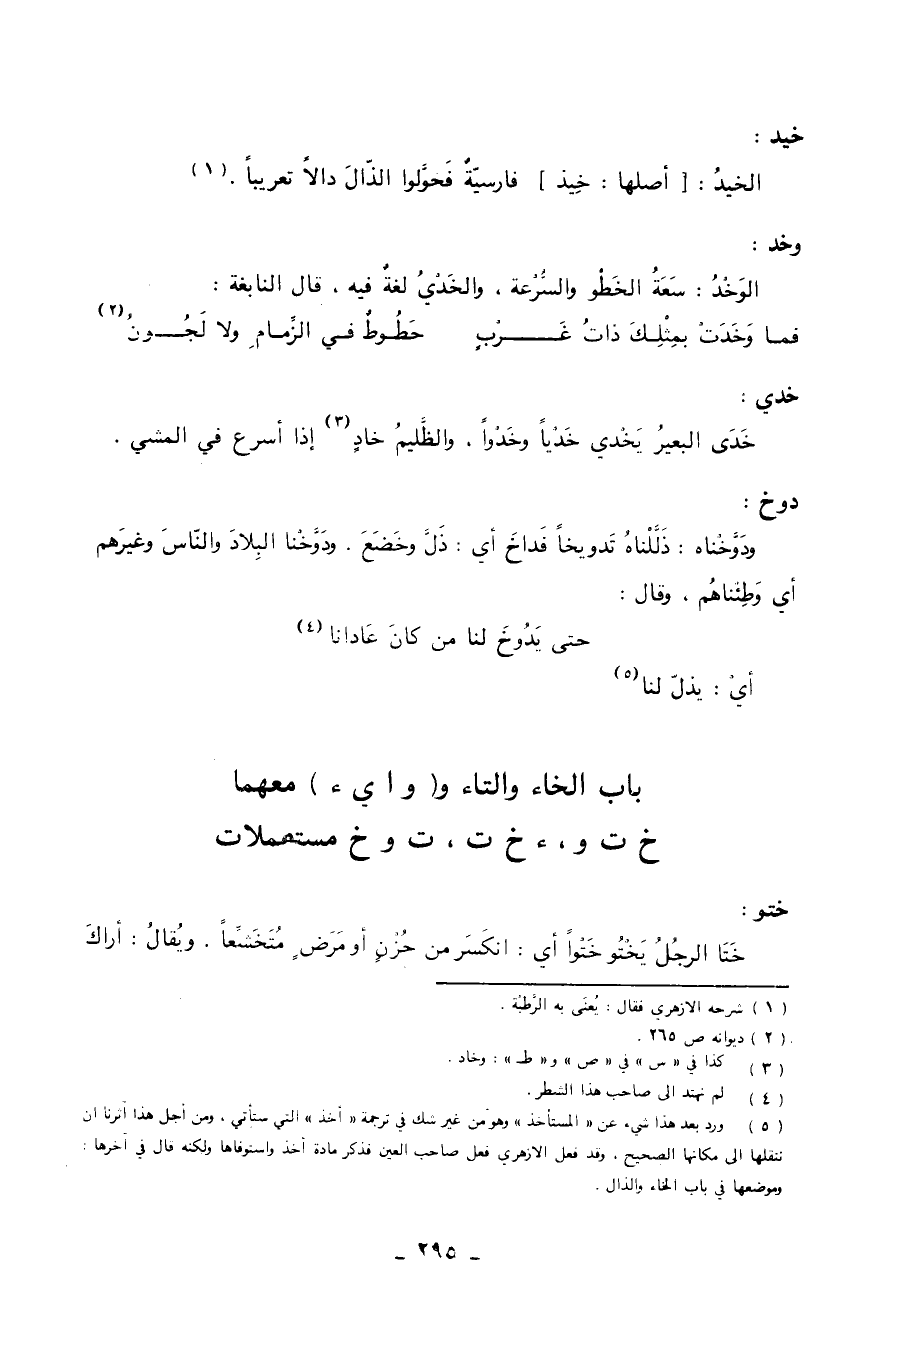 خيد :
الخيدُ : [ أصلها : خِيذ ] فارسيّةٌ فَحوَّلوا الذّالَ دالاً تعريباً .(١)
وخد :
الوَخْدُ : سَعَةُ الخَطْو والسُّرْعة ، والخَدْيُ لغةٌ فيه ، قال النابغة :
فمـا وَخَدَتْ بمِثْلِـكَ ذاتُ غَـــــرْبٍ حَطُـوطٌ فـي الزِّمـام ِ ولا لَجُـــونُ(٢)
خدي :
خَدَى البعيرُ يَخْدي خَدْياً وخَدْواً ، والظَّليمُ خادٍ(٣) إذا أسرع في المشي .
دوخ :
ودَوَّخْناه : ذَلَّلْناهُ تَدويخاً فَداخَ أي : ذَلَّ وخَضَعَ . ودَوَّخْنا البِلادَ والنّاسَ وغيرَهم
أي وَطِئْناهُم ، وقال :
حتى يَدُوخَ لنا من كانَ عَادانا (٤)
أيْ : يذلّ لنا(٥)
باب الخاء والتاء و( و ا ي ء ) معهما
خ ت و ، ء خ ت ، ت و خ مستعملات
ختو :
خَتَا الرجُلُ يَخْتُو خَتْواً أي : انكَسَر من حُزْنٍ أو مَرَض ٍ مُتَخَشِّعاً . ويُقالُ : أراكَ
( ١ ) شرحه الازهري فقال : يُعنَى به الرَّطبْة .
( ٢ ) ديوانه ص ٢٦٥ .
( ٣ ) كذا في « س » في « ص » و « ط » : وخاد .
( ٤ ) لم نهتد الى صاحب هذا الشطر .
( ٥ ) ورد بعد هذا شيء عن « المستأخذ » وهو من غير شك في ترجمة « أخذ » التي ستأتي ، ومن أجل هذا آثرنا ان
ننقلها الى مكانها الصحيح ، وقد فعل الازهري فعل صاحب العين فذكر مادة أخذ واستوفاها ولكنه قال في آخرها :
وموضعها في باب الخاء والذال .
_ ٢٩٥ _